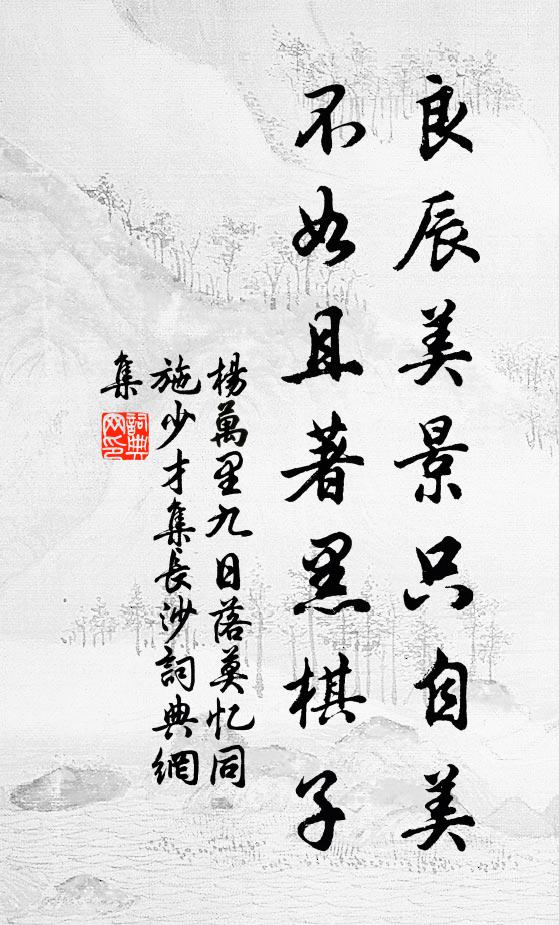 良辰美景只自美
不如且著黑棋子
楊萬里九日落莫忆同
施少才集長沙詞典網
集
詞典網印